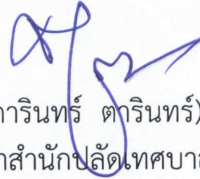 การินทร์ ตารินทร์)
าสำนักปลัดเทศบาล